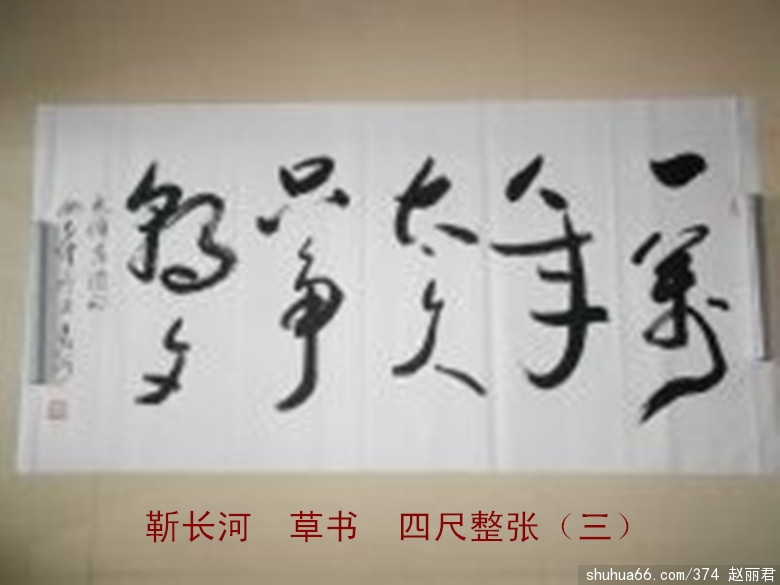 一萬
年
太久
只争
朝夕
靳长河 草书 四尺整张（三）
shuhua66.com/374 赵丽君